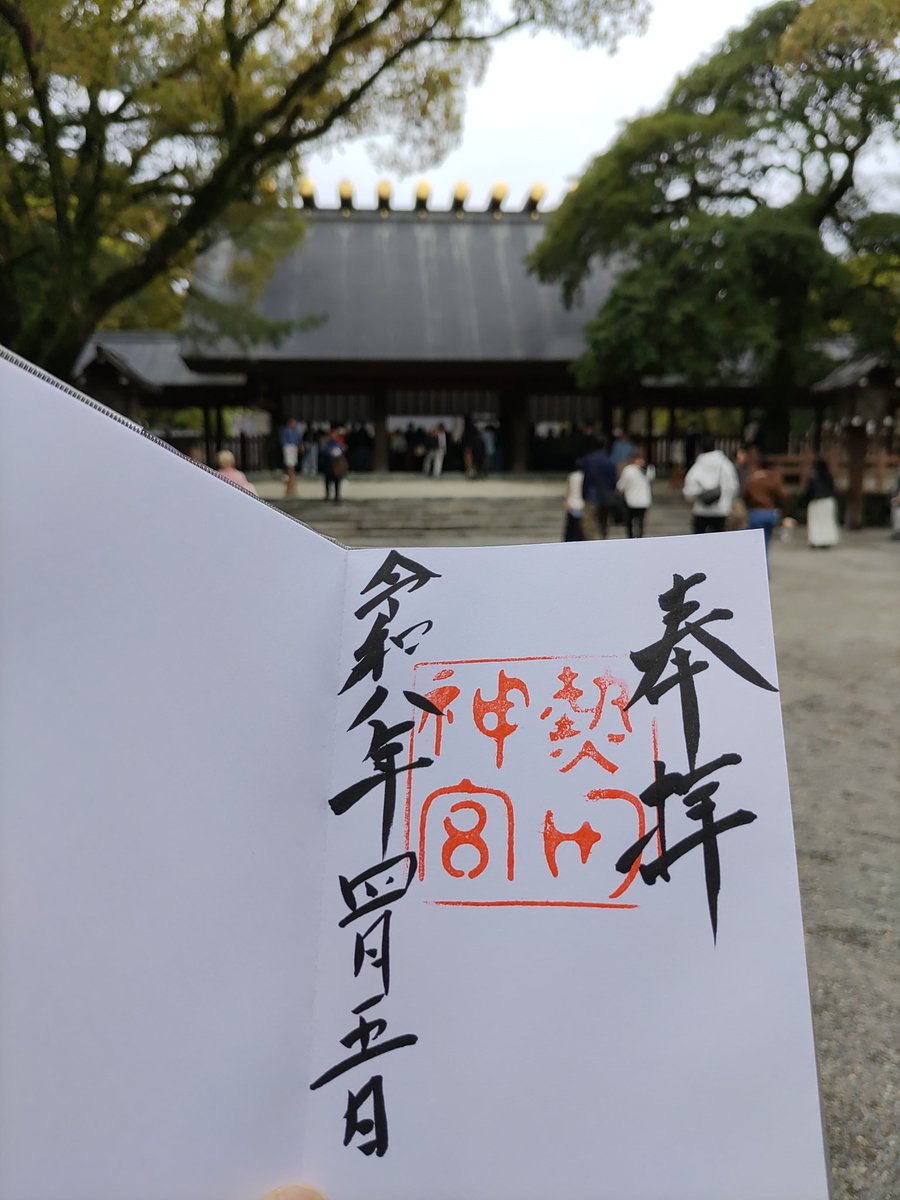 奉拝
熱田
神宮
令和八年四月五日